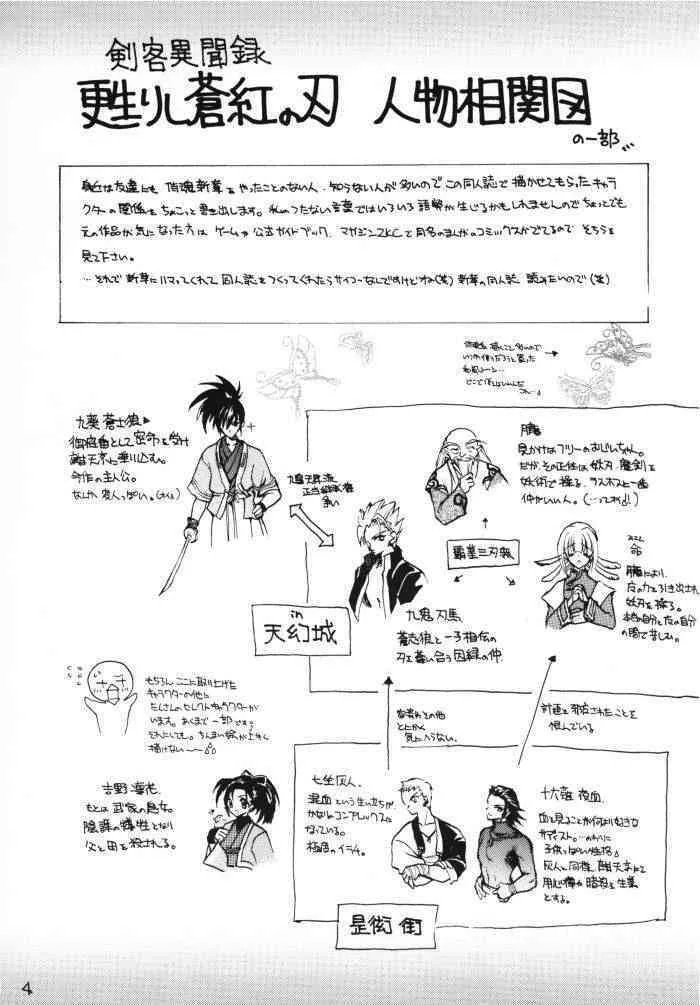 剣客異聞録
甦りし蒼紅の刃 人物相関図
の一部
最近は友達にも 侍魂新章をやったことのない人、知らない人が多いのでこの同人誌で描かせてもらったキャラ
クターの関係をちょこっと書き出します。私のつたない言葉ではいろいろ誤解が生じるかもしれませんのでちょっとでも
元の作品が気になった方は ゲームや公式ガイドブック、マガジンZKCで
そちらを
見て下さい。
…それで新章にハマってくれて同人誌をつくってくれたらサイコーなんですけどね(笑)新章の同人誌 読みたいので(笑)
九葵 蒼士狼
御庭番として密命を受け
離天京に乗り込む。
今作の主人公。
九鬼刃馬
蒼志狼と一子相伝の
刃を奪い合う因縁の仲。
朧
見かけはフリーのおじいちゃん。
だが、その正体は妖刃、魔剣を
妖術で操る、ラスボスと一番
仲がいい人。
覇業三刃衆
命
朧により、
妖刃を操る。
本当の自分と
の間で苦しむ。
in
天幻城
もちろん、ここに取り上げた
キャラクターの他に
たくさんのセレクトキャラクターが
います。あくまで一部です。
とにかく
気に入らない。
計画を邪魔されたことを
恨んでいる
吉野 凜花
もとは武家の息女。
陰謀の犠牲となり
父と母を殺される。
七坐 灰人
混血という生い立ちが
かなりのコンプレックスに
なっている。
極度のイラチ。
十六夜 夜血
血を見ることが何より好きな
サディスト。
子供っぽい性格
灰人と同様、離天京にて
用心棒や暗殺を生業
とする。
是衒街
4